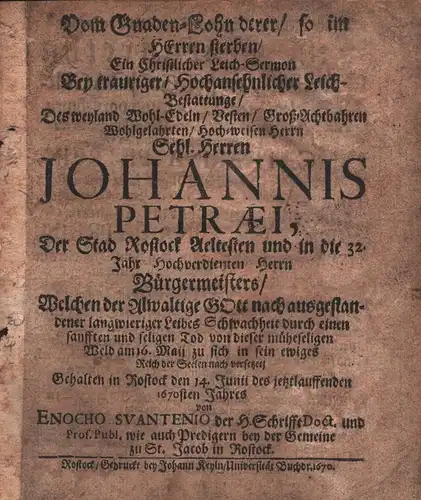 Vom Gnaden-Lohn derer/ so im
HErren sterben/
Ein Christlicher Leich-Sermon
Bey trauriger/ Hochansehnlicher Leich-
Bestattunge/
Des weyland Wohl-Edeln/ Vesten/ Groß-Achtbahren
Wohlgelahrten/ Hoch-weisen Herrn
Sehl. Herren
JOHANNIS
PETRÆI,
Der Stad Rostock Aeltesten und in die 32.
Jahr Hochverdienten Herrn
Bürgermeisters/
Welchen der Alwaltige GOtt nach ausgestan-
dener langwieriger Leibes Schwachheit durch einen
sanfften und seligen Tod von dieser müheseligen
Weld am 16. Maij zu sich in sein ewiges
Reich der Seelen nach versetzet/
Gehalten in Rostock den 14. Junii des jetztlauffenden
1670sten Jahres
von
ENOCHO SVANTENIO der H. Schrifft Doct. und
Prof. Publ. wie auch Predigern bey der Gemeine
zu St. Jacob in Rostock.
Rostock/ Gedruckt bey Johann Keyln/ Universität Buchdr. 1670.